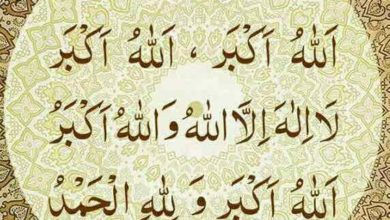 اَللهُ اَكْبَر ، اَللهُ اَكْبَر
لَا اِلٰهَ اِلَّا اللهُ وَاللهُ اَكْبَرُ
اَللهُ اَكْبَر وَ لِلّٰهِ الْحَمْدُ